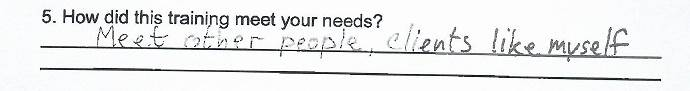 5. How did this training meet your needs?
Meet other people, clients like myself